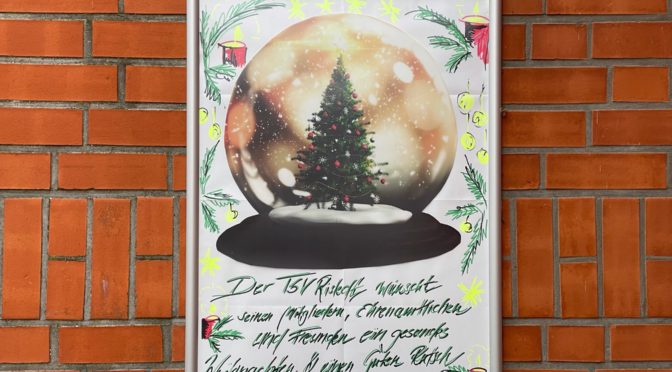 Der TSV Riskofft wünscht
seinen Mitgliedern, Ehrenamtlichen
und Freunden ein gesundes
Weihnachten & einen Guten Rutsch